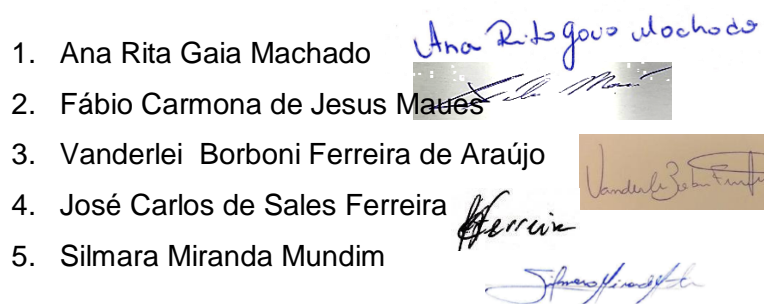 1. Ana Rita Gaia Machado Ana Rita Gaia Machado
2. Fábio Carmona de Jesus Maues
3. Vanderlei Borboni Ferreira de Araújo
4. José Carlos de Sales Ferreira Ferreira
5. Silmara Miranda Mundim